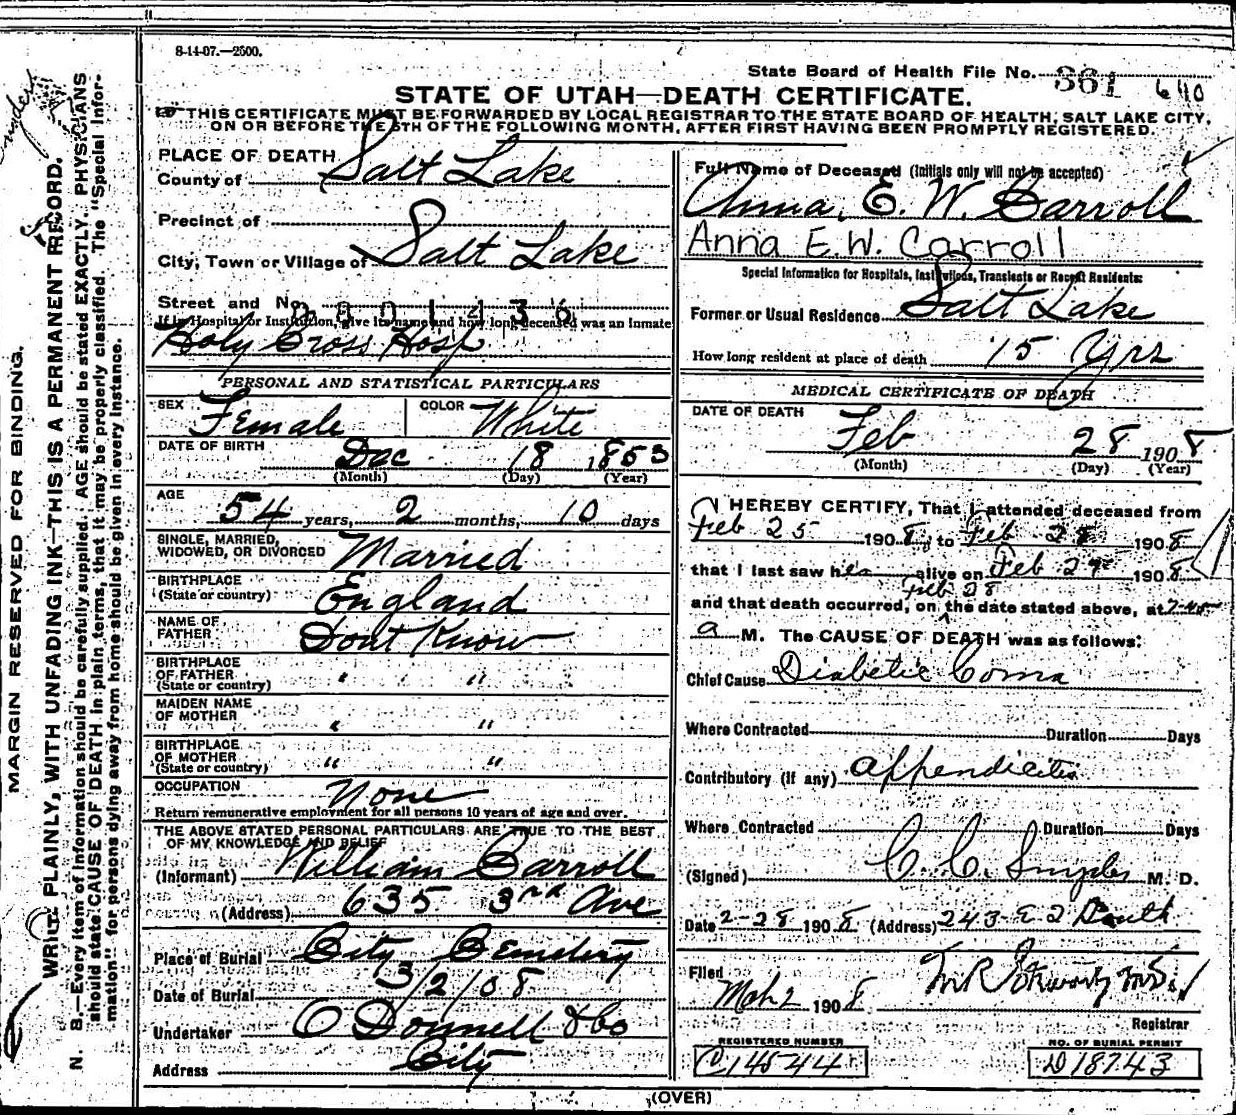 8-14-07.—2500.
State Board of Health File No. 361 640
STATE OF UTAH—DEATH CERTIFICATE.
THIS CERTIFICATE MUST BE FORWARDED BY LOCAL REGISTRAR TO THE STATE BOARD OF HEALTH, SALT LAKE CITY,
ON OR BEFORE THE 5TH OF THE FOLLOWING MONTH, AFTER FIRST HAVING BEEN PROMPTLY REGISTERED.
MARGIN RESERVED FOR BINDING.
WRITE PLAINLY, WITH UNFADING INK—THIS IS A PERMANENT RECORD.
N. B.—Every item of information should be carefully supplied. AGE should be stated EXACTLY. PHYSICIANS
should state CAUSE OF DEATH in plain terms, that it may be properly classified. The "Special Infor-
mation" for persons dying away from home should be given in every instance.
Snyder
PLACE OF DEATH
County of Salt Lake
Precinct of
City, Town or Village of Salt Lake
Street and No.
If in Hospital or Institution, give its name and how long deceased was an Inmate
Holy Cross Hosp
PERSONAL AND STATISTICAL PARTICULARS
SEX Female COLOR White
DATE OF BIRTH Dec 18 1853
(Month) (Day) (Year)
AGE
54 years, 2 months, 10 days
SINGLE, MARRIED,
WIDOWED, OR DIVORCED Married
BIRTHPLACE
(State or country) England
NAME OF
FATHER Dont Know
BIRTHPLACE
OF FATHER
(State or country) " "
MAIDEN NAME
OF MOTHER " "
BIRTHPLACE
OF MOTHER
(State or country) " "
OCCUPATION None
Return remunerative employment for all persons 10 years of age and over.
THE ABOVE STATED PERSONAL PARTICULARS ARE TRUE TO THE BEST
OF MY KNOWLEDGE AND BELIEF
(Informant) William Carroll
(Address) 635 3rd Ave
Place of Burial City Cemetery
Date of Burial 3/2/08
Undertaker O Donnell & Co
Address City
Full Name of Deceased (Initials only will not be accepted)
Anna, E. W. Carroll
Anna E.W. Carroll
Special Information for Hospitals, Institutions, Transients or Recent Residents:
Former or Usual Residence Salt Lake
How long resident at place of death 15 Yrs
MEDICAL CERTIFICATE OF DEATH
DATE OF DEATH
Feb 28 1908
(Month) (Day) (Year)
I HEREBY CERTIFY, That I attended deceased from
Feb 25 1908, to Feb 28 1908
that I last saw her alive on Feb 27 1908
Feb 28
and that death occurred, on the date stated above, at 7-45
a M. The CAUSE OF DEATH was as follows:
Chief Cause Diabetic Coma
Where Contracted Duration Days
Contributory (if any) Appendicitis
Where Contracted Duration Days
(Signed) C. C. Snyder M. D.
Date 2-28 1908 (Address) 243 E 2 South
Filed
Mch 2 1908
Registrar
REGISTERED NUMBER
C14544
NO. OF BURIAL PERMIT
D18743
(OVER)